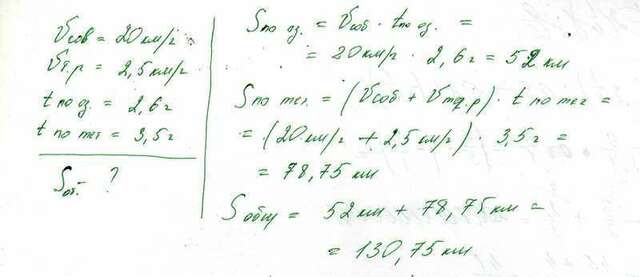 Vсоб = 20 км/г
Vт.р = 2,5 км/г
t по оз. = 2,6 г
t по теч = 3,5 г
Sоб. - ?
Sпо оз. = Vсоб · tпо оз. =
= 20 км/г · 2,6 г = 52 км
Sпо теч. = (Vсоб + Vтеч.р) · t по теч =
= (20 км/г + 2,5 км/г) · 3,5 г =
= 78,75 км
Sобщ = 52 км + 78,75 км =
= 130,75 км.